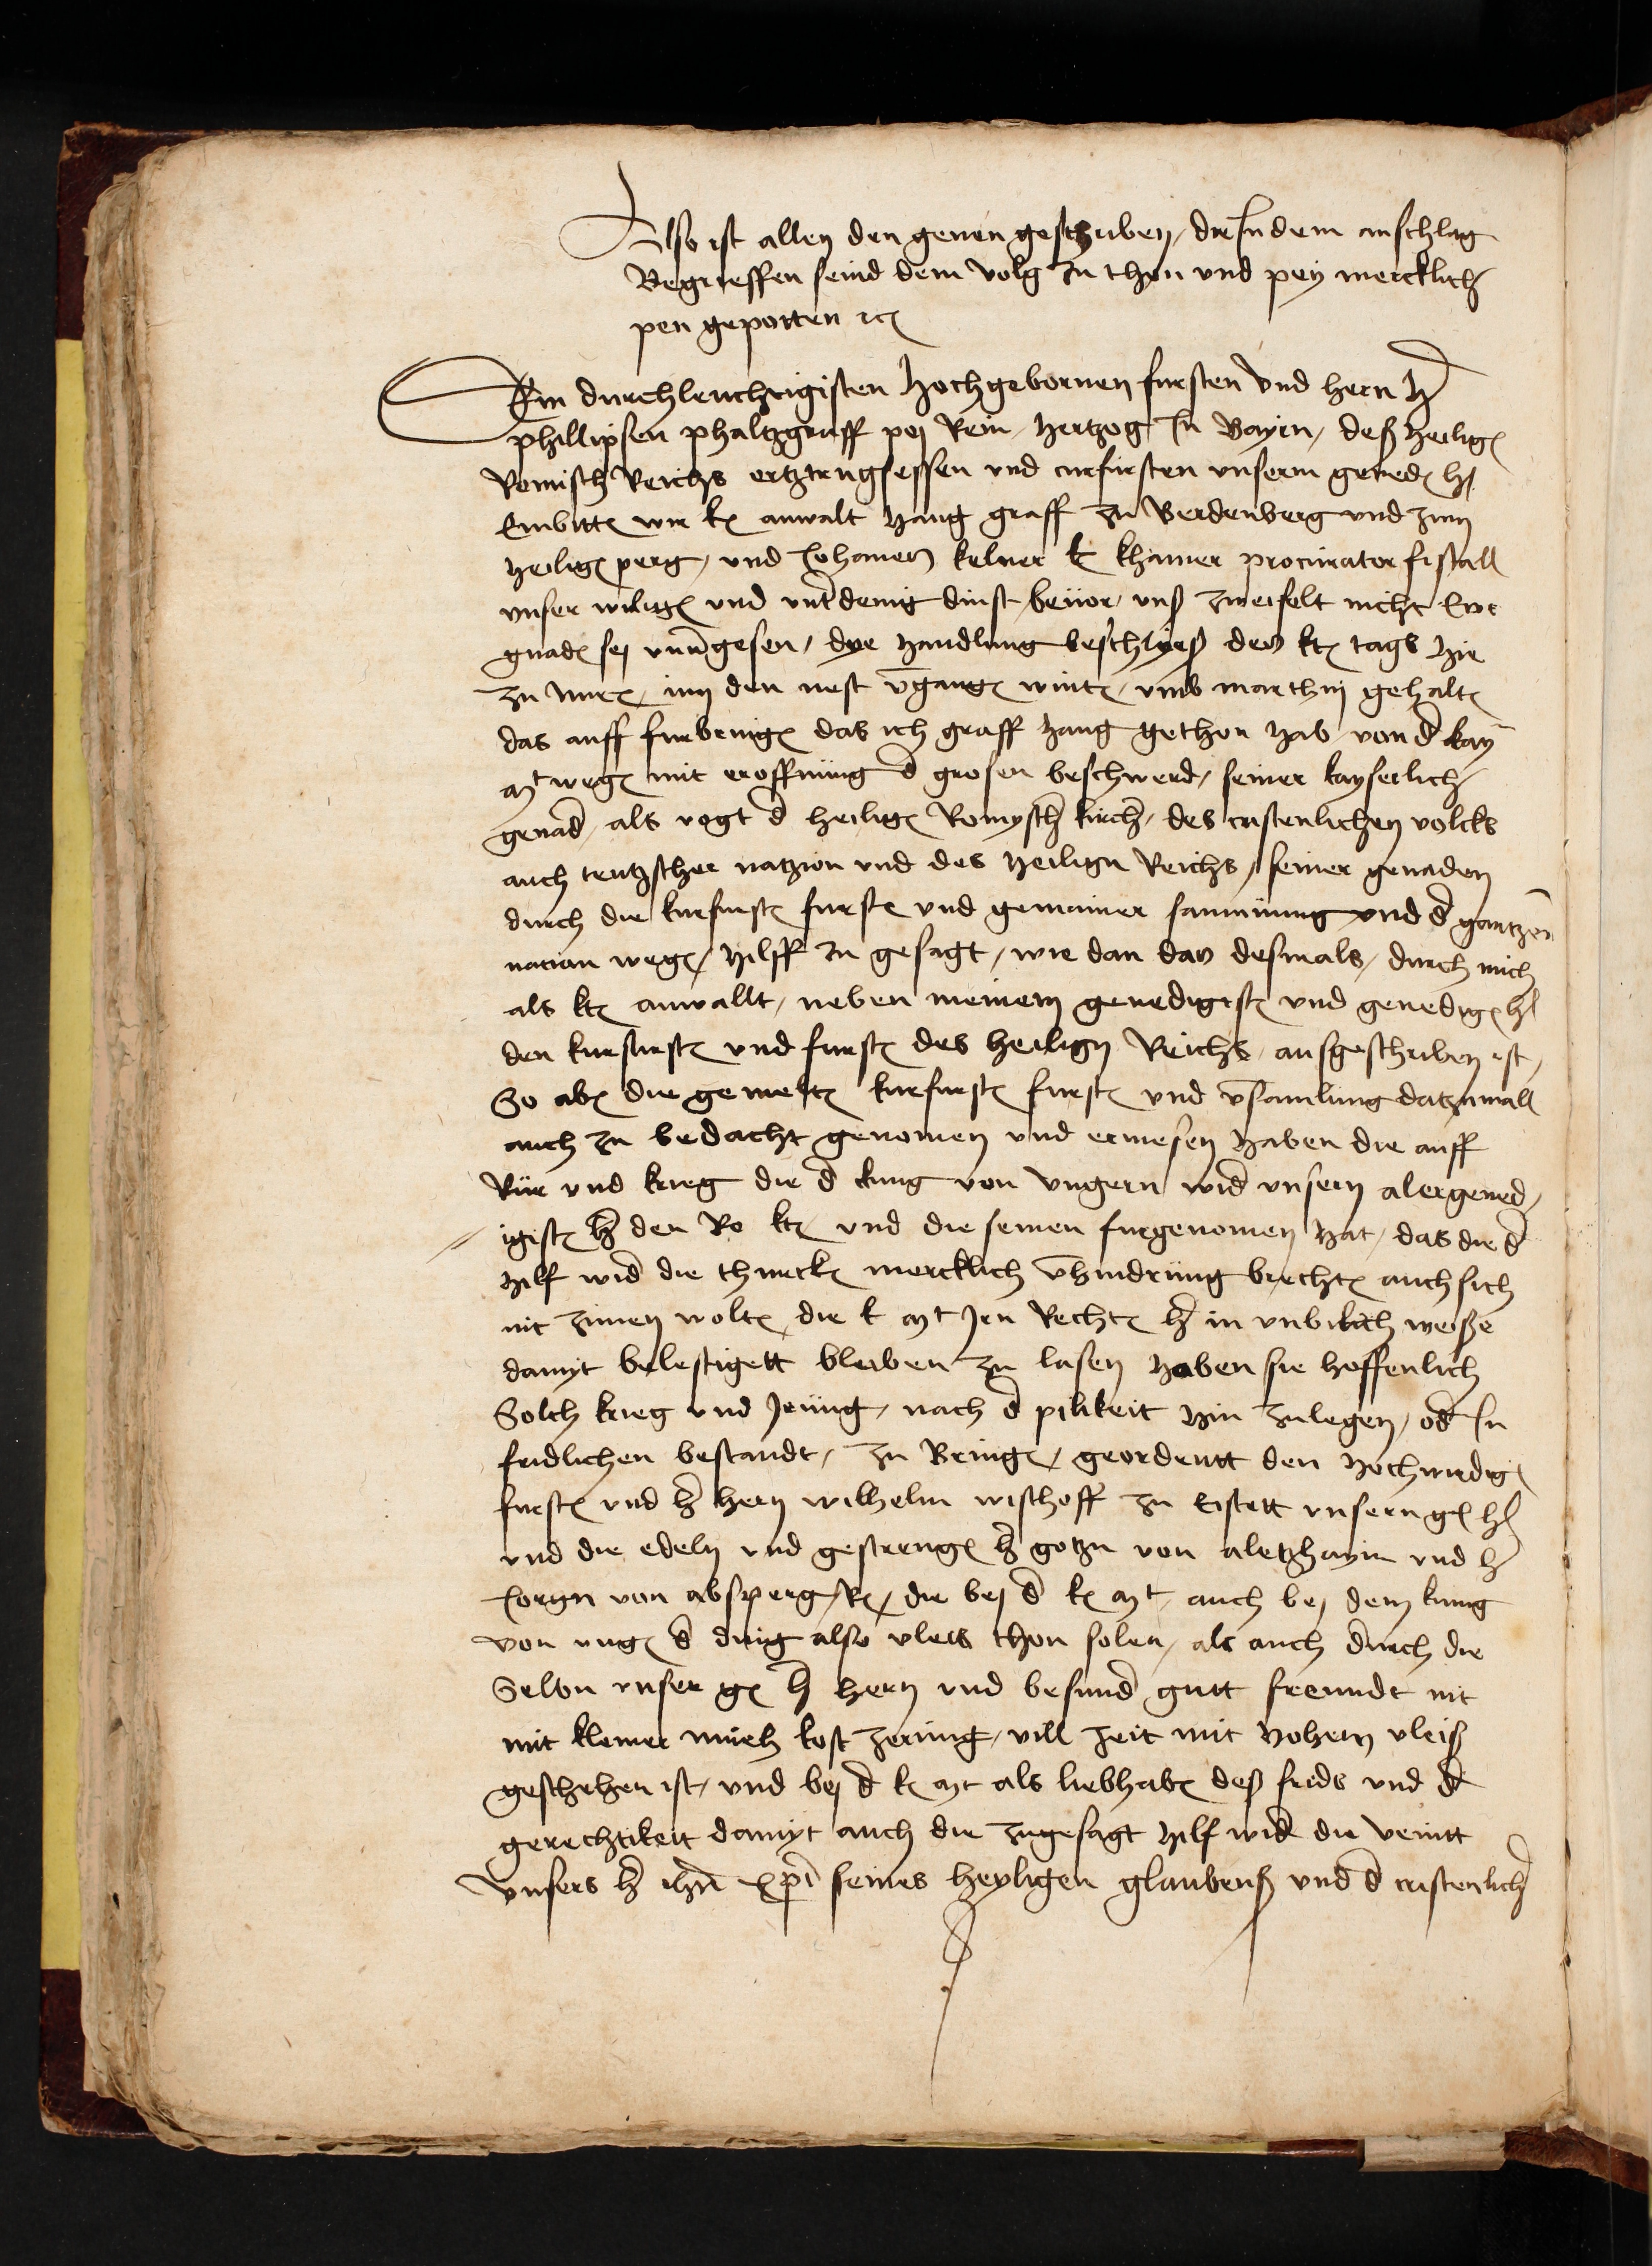 Also ist allen den genen geschriben, die In dem anschlag
Begrieffen seind dem volg zu thon und pey mercklich
pen gepotten etc
Dem durchleuchtigisten hochgebornen fursten und hern h
phillipsen phaltzgraff pej Rein, hertzog In Bayrn, deß heilig
Romisch Reichs ertztrugsessen und curfursten unserm gened h
Embitt wir k anwalt haug graff zu Verdenberg und zum
heilig perg, und Johanes kelner k khamer procurator fiscall
unser willig und untdenig dinst bevor, unß zweifelt nicht Ewr
gnad sej unvgesen, dye handlung beschlyeß des kr tags hie
zu Nur, im den nest vgang wint, umb marthinj gehalt
das auff furbring das ich graff haug gethon hab von d kay
mt weg mit eroffnung d grosen beschwerd, seiner kayserlich
genad, als vogt d heilig Romysch kirch, des cristenlichen volcks
auch teutzscher natzion und des heilign Reichs, seiner genaden
durch die kurfurst furst und gemainer samnung und d gantzen
nacian weg, hilff zu gesagt, wie dan das desmals, durch mich
als kr anwallt, neben meinem genedigist und genedig h
den kurfurst und furst des heilign Reichs, ausgeschriben ist,
So ab die gemelt kurfurst furst und vsamlung datzumall
auch zu bedacht genomen und ermesen haben die auff
Rür und krieg die d kung von ungern wid unsern alergened,
igist h den Ro kr und die seinen furgenomen hat, das die d
hilf wid die thurck mercklich vhindrung brecht auch sich
nit zimen wolt, die k mt Jen Recht h in unbilich weiße
damyt belestigett bleiben zu lasen haben sie hoffenlich
Solch krieg und Jrüng, nach d pilikeit hin zulegen, od In
fridlichen bestandt, zu Bring, geordentt den hochwirdig
furst und h hern wilhelm wischoff zu Eistett unsern g h
und die edeln und gestreng h gotzn von aletzhaym und h
Jorgn von absperg, R, die bej d k mt, auch bej dem kung
von ung d ding also vleis thon solen, als auch durch die
Selbn unser g h hern und besund gutt freundt nit
mit kleiner mueh kost zerung, vill zeit mit hohem vleiß
geschehen ist, und bej d k mt als liebhab deß frids und d
gerechtikeit damyt auch die zugesagt hilf wid die veintt
unsers h ihu xpi seines heyligen glaubenß und d cristenlich